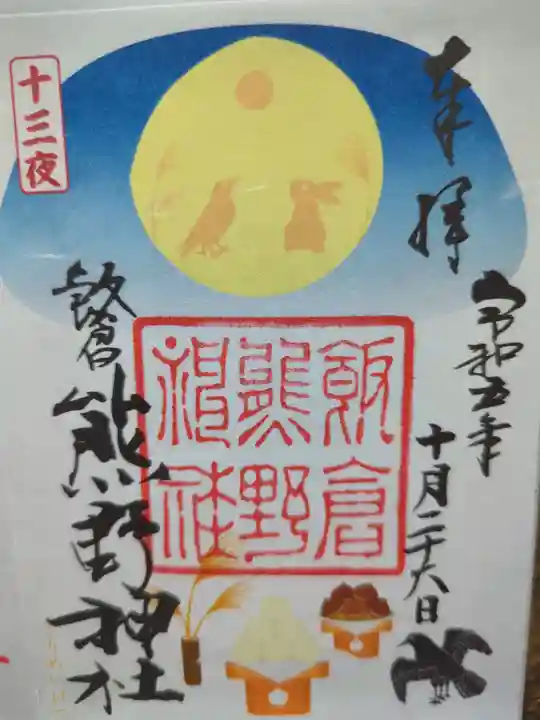 奉拝
令和五年
十月二十八日
飯倉
熊野
神社
飯倉熊野神社
十三夜